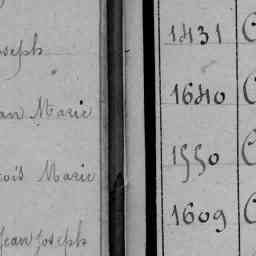 oseph
1431 C
an Marie
1640 C
1550 C
çois Marie
1609 C
Jean Joseph